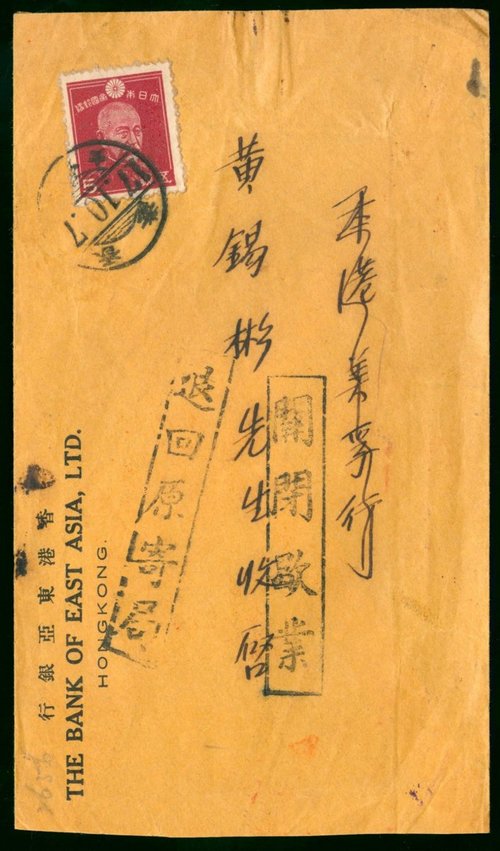 大日本帝國郵便
17.10.7
本港美孚行
黃錫彬先生收啓
關閉歇業
退回原寄局
香港東亞銀行
THE BANK OF EAST ASIA, LTD.
HONGKONG.